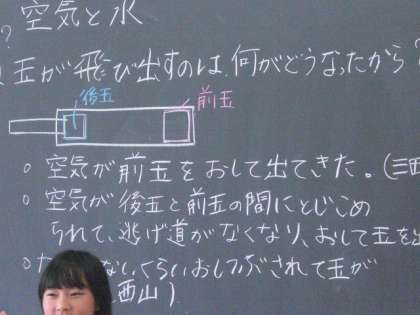 空気と水
?
玉が飛び出すのは、何がどうなったから?
後玉
前玉
○空気が前玉をおして出てきた。(三田
○空気が後玉と前玉の間にとじこめ
られて、逃げ道がなくなり、おして玉を出
ないくらいおしつぶされて玉が
西山)